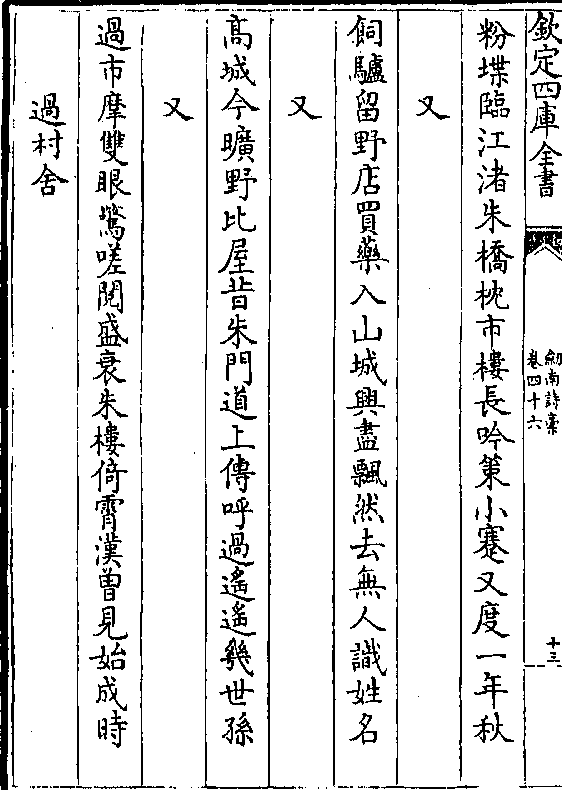 欽定四庫全書
劒南詩稾
卷四十六
十三
粉堞臨江渚朱橋枕市樓長吟策小蹇又度一年秋
又
飼驢留野店買藥入山城興盡飄然去無人識姓名
又
髙城今曠野比屋昔朱門道上傳呼過遥遥幾世孫
又
過市摩雙眼驚嗟閱盛衰朱樓倚霄漢曽見始成時
過村舍